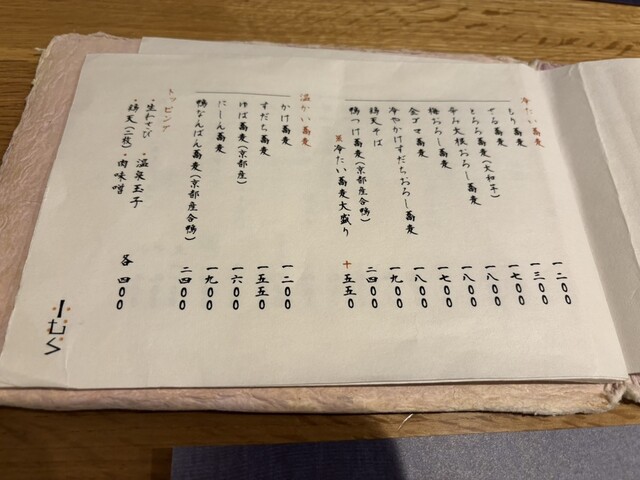 冷たい蕎麦
もり蕎麦 一二〇〇
ざる蕎麦 一三〇〇
とろろ蕎麦(大和芋) 一七〇〇
辛み大根おろし蕎麦 一八〇〇
梅おろし蕎麦 一八〇〇
金ゴマ蕎麦 一七〇〇
冷やかけすだちおろし蕎麦 一八〇〇
鶏天そば 一九〇〇
鴨つけ蕎麦(京都産合鴨) 二四〇〇
冷たい蕎麦大盛り +五五〇
温かい蕎麦
かけ蕎麦 一二〇〇
すだち蕎麦 一五五〇
ゆば蕎麦(京都産) 一六〇〇
にしん蕎麦 一九〇〇
鴨なんばん蕎麦(京都産合鴨) 二四〇〇
トッピング
・生わさび ・温泉玉子
・鶏天(二枚) ・肉味噌 各四〇〇
じむら